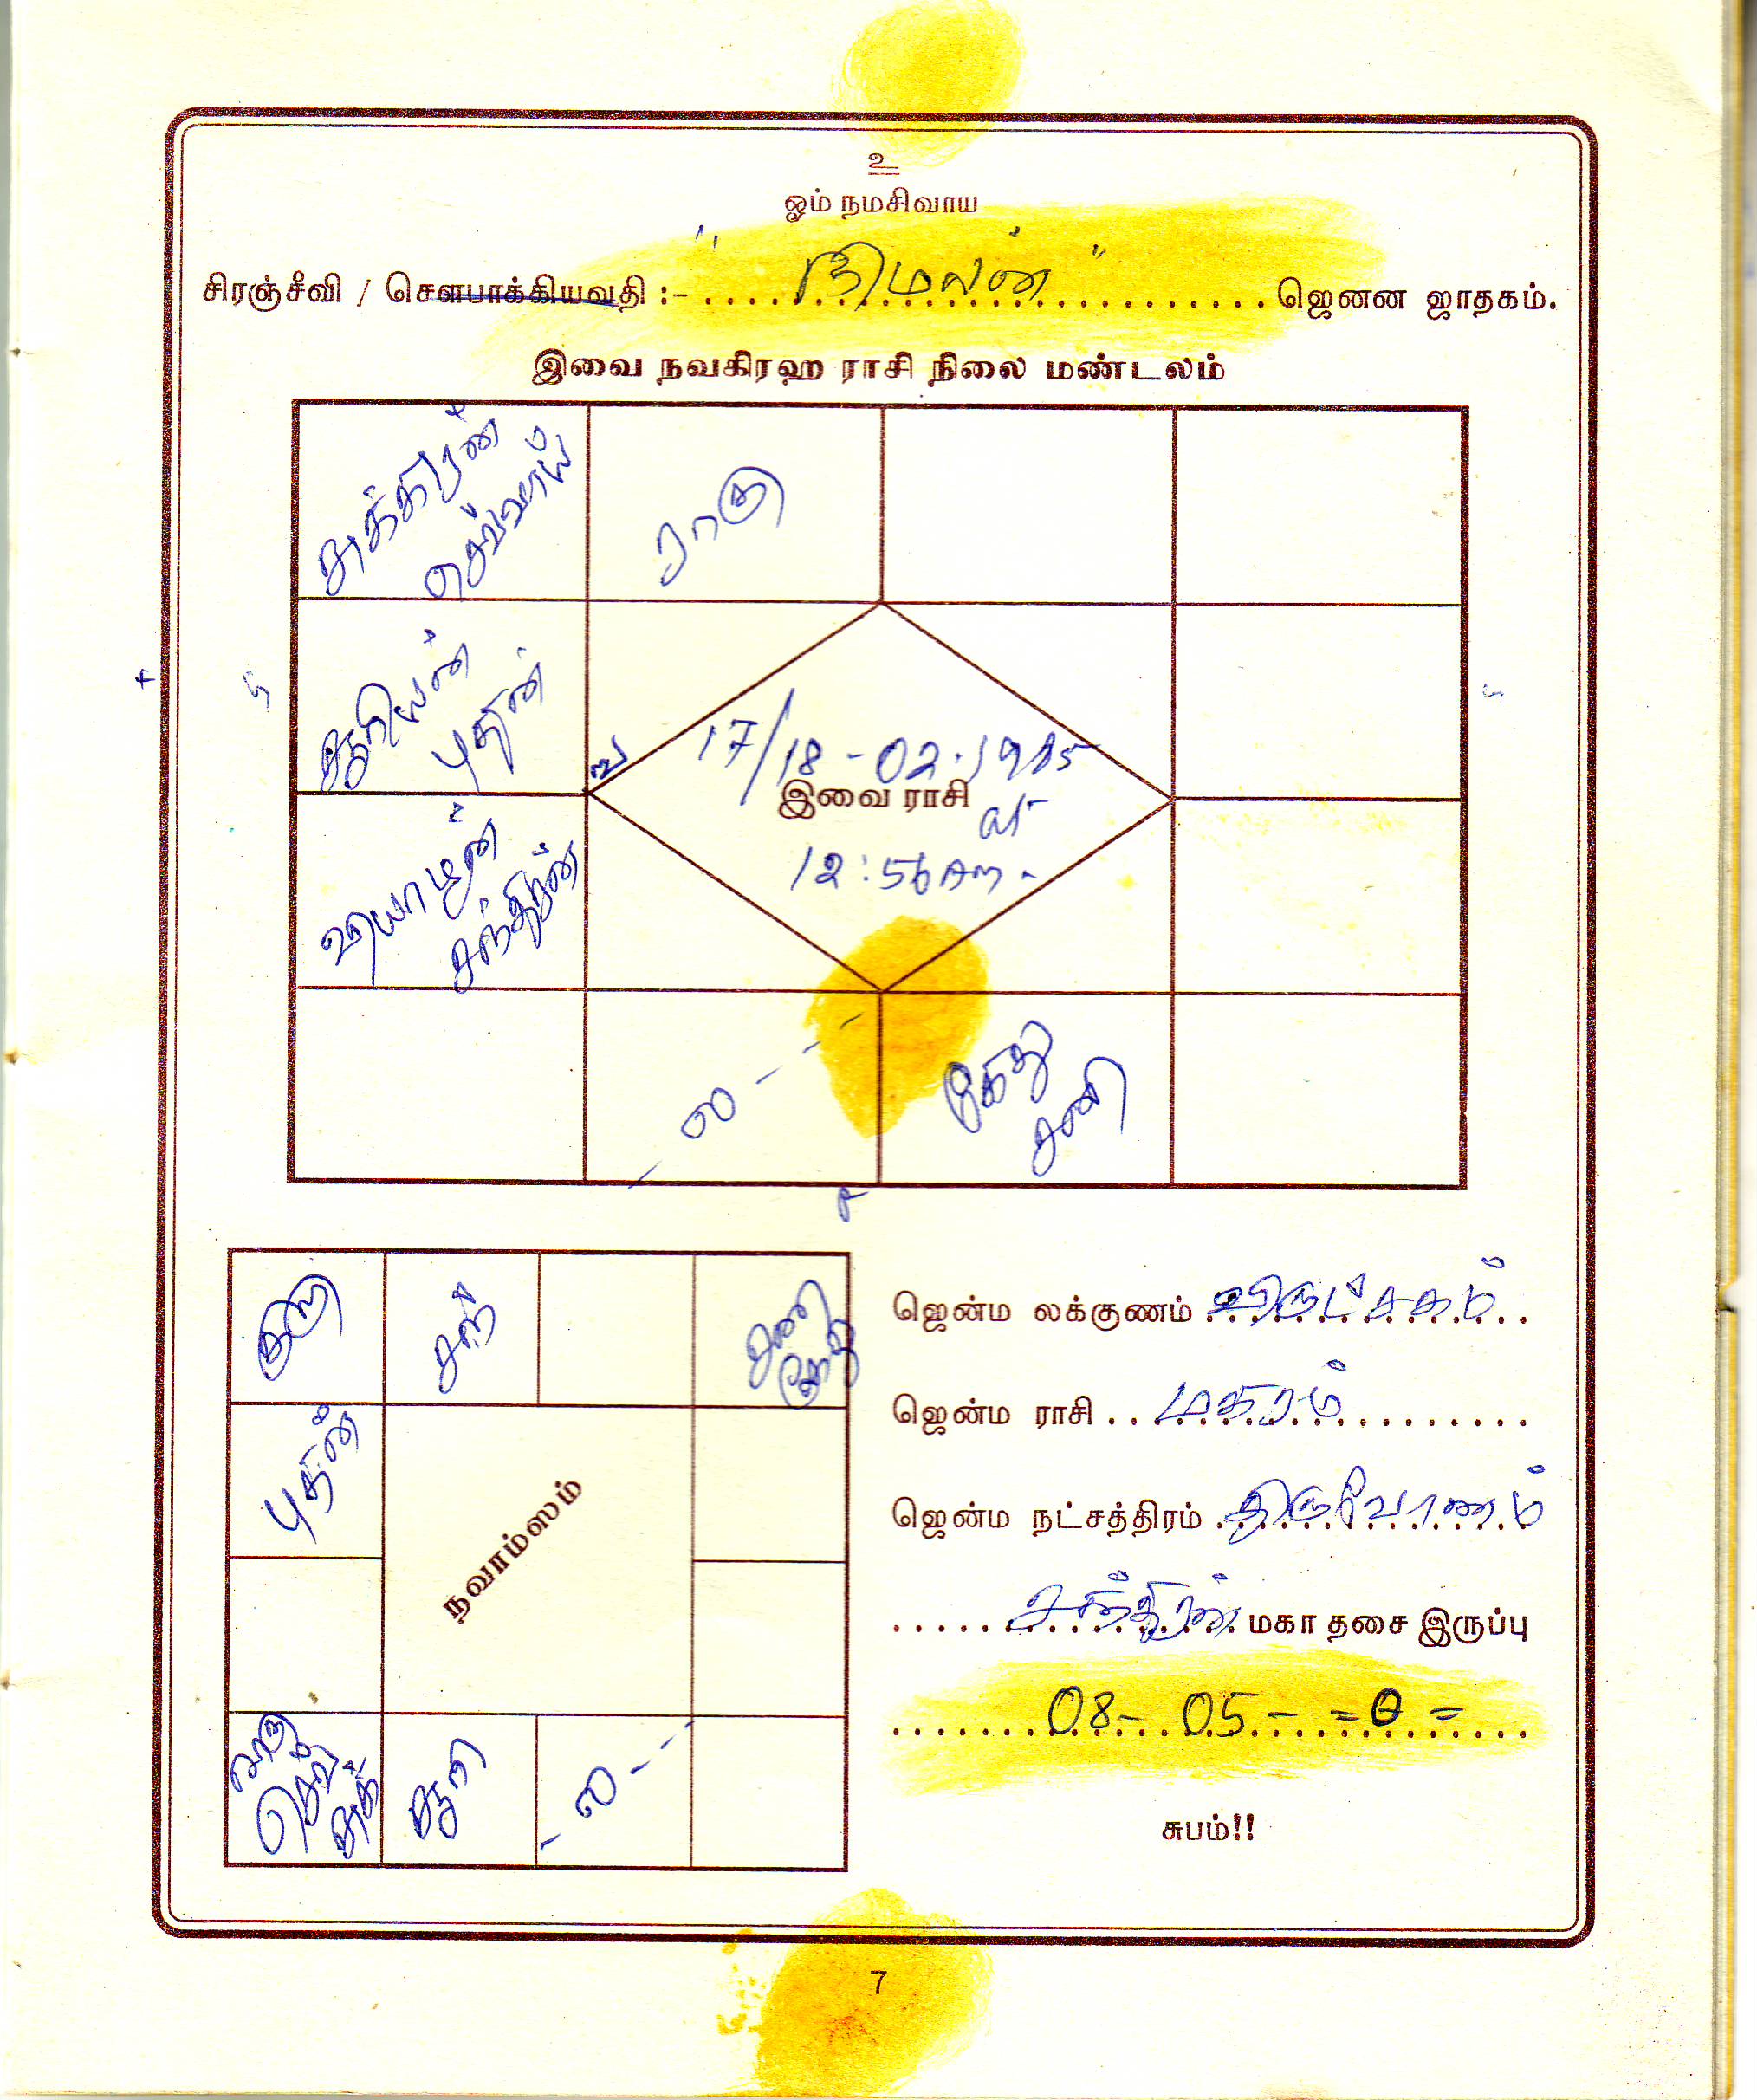 உ
ஓம் நமசிவாய
சிரஞ்சீவி / சௌபாக்கியவதி :- "நிமலன்" ஜெனன ஜாதகம்.
இவை நவகிரஹ ராசி நிலை மண்டலம்
சுக்கிரன்
செவ்வாய்
ராகு
சூரியன்
புதன்
17/18-02-1985
இவை ராசி
at
12:56 Am
வியாழன்
சந்திரன்
ல
கேது
சனி
குரு
சந்
சனி
கேது
புதன்
நவாம்ஸம்
ராகு
செவ்
சுக்
சூரி
ல
ஜென்ம லக்குணம் விருட்சகம்
ஜென்ம ராசி மகரம்
ஜென்ம நட்சத்திரம் திருவோணம்
சந்திரன் மகா தசை இருப்பு
08- 05- =0=
சுபம்!!
7